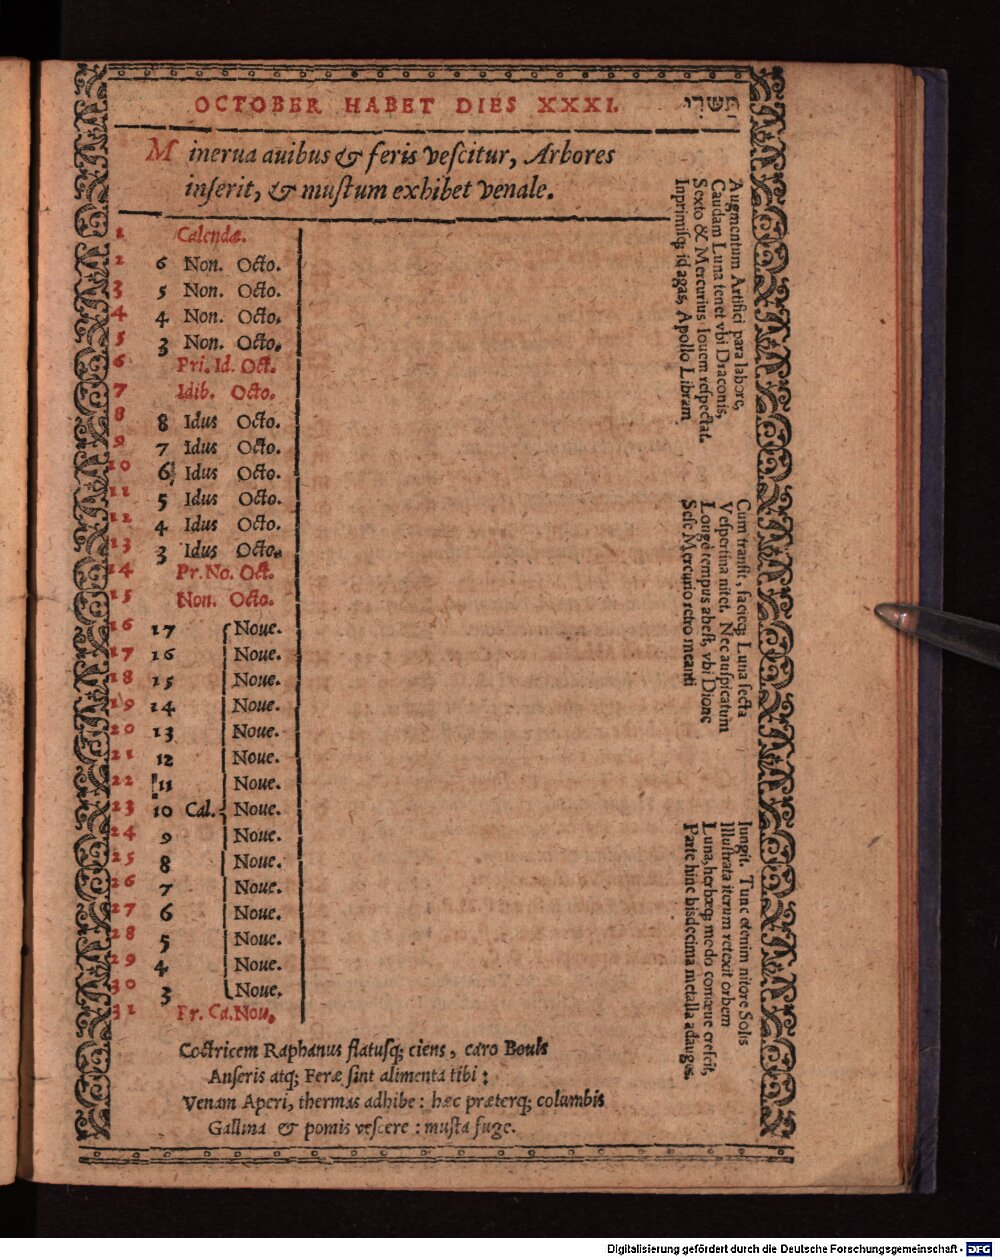 OCTOBER HABET DIES XXXI.
תשרי
Minerua auibus & feris vescitur, Arbores
inserit, & mustum exhibet venale.
1 Calendæ.
2 6 Non. Octo.
3 5 Non. Octo.
4 4 Non. Octo.
5 3 Non. Octo.
6 Pri. Id. Oct.
7 Idib. Octo.
8 8 Idus Octo.
9 7 Idus Octo.
10 6 Idus Octo.
11 5 Idus Octo.
12 4 Idus Octo.
13 3 Idus Octo.
14 Pr. No. Oct.
15 Non. Octo.
16 17 Noue.
17 16 Noue.
18 15 Noue.
19 14 Noue.
20 13 Noue.
21 12 Noue.
22 11 Noue.
23 10 Cal. Noue.
24 9 Noue.
25 8 Noue.
26 7 Noue.
27 6 Noue.
28 5 Noue.
29 4 Noue.
30 3 Noue.
31 Pr. Ca. Nou.
Coctricem Raphanus flatusq; ciens, caro Bouis
Anseris atq; Feræ sint alimenta tibi:
Venam Aperi, thermas adhibe: hæc præterq; columbis
Gallina & pomis vescere: musta fuge.
Augmentum Artifici para labore,
Caudam Luna tenet vbi Draconis,
Sexto & Mercurius Iouem respectat.
Inprimisq; id agas, Apollo Libram
Cum transit, facieq; Luna secta
Vespertina nitet. Nec auspicatum
Longè tempus abest, vbi Dione
Sese Mercurio retro meanti
Iungit. Tunc etenim nitore Solis
Illustrata iterum retexit orbem
Luna, herbæq; modo comæue crescit,
Parte hinc bisdecima metalla adauges.
Digitalisierung gefördert durch die Deutsche Forschungsgemeinschaft - DFG